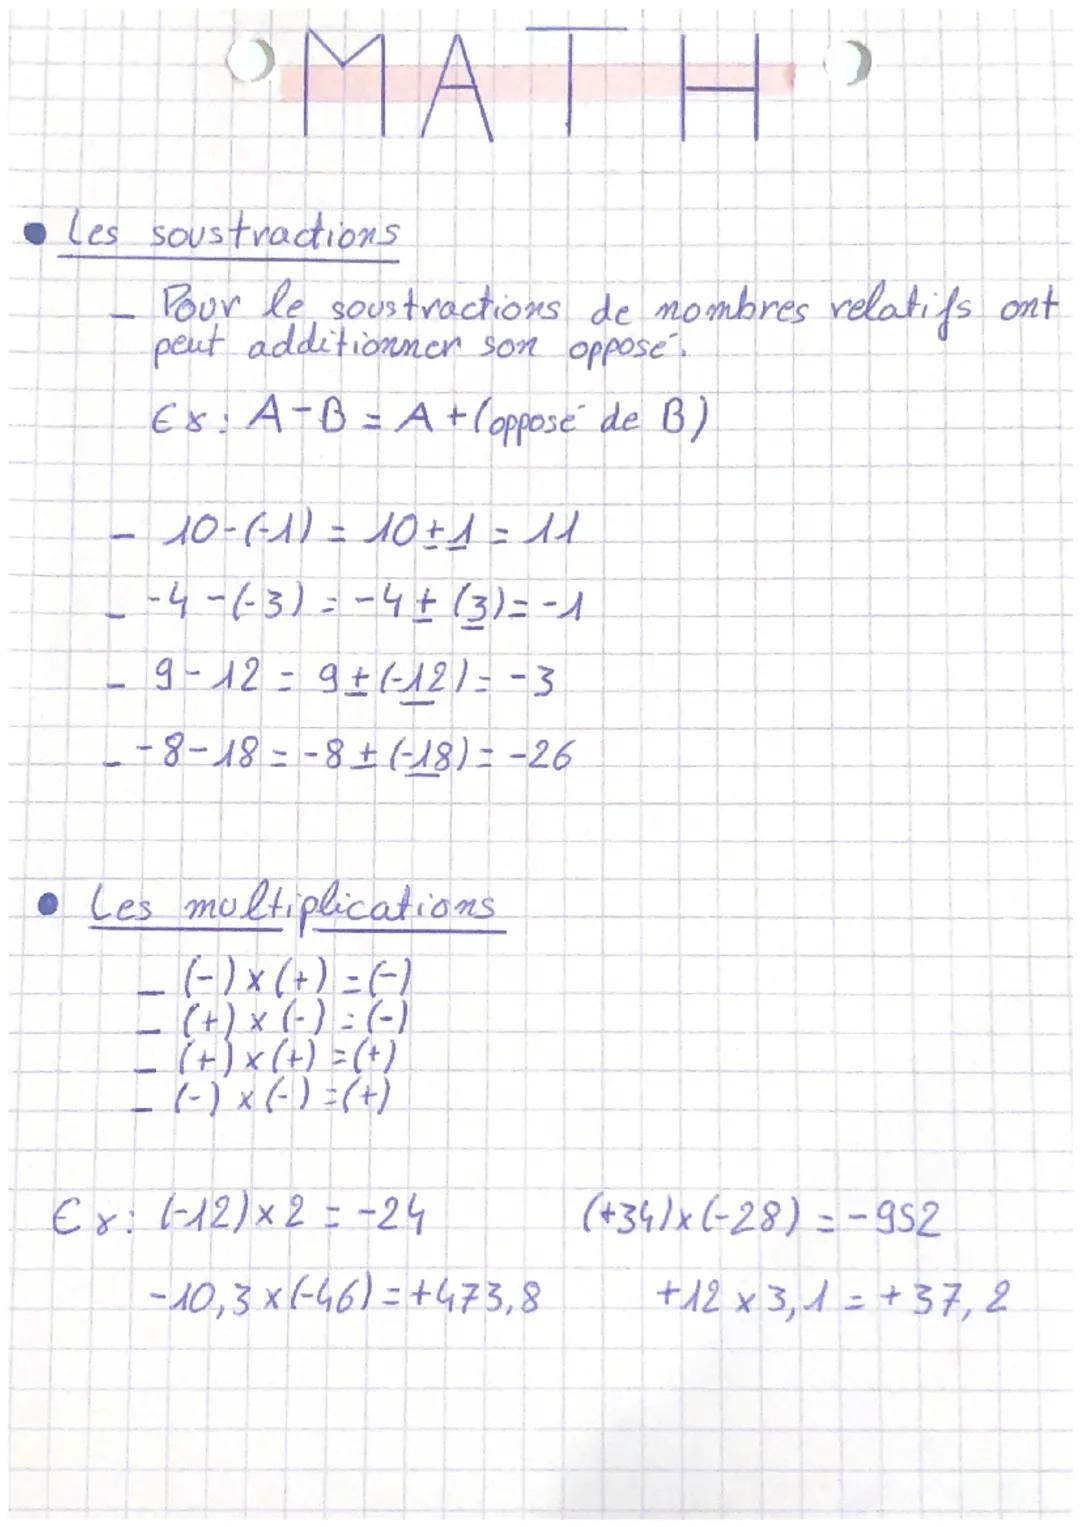 MATH
• Les soustractions
- Pour le soustractions de nombres relatifs ont
peut additionner son opposé.
Ex : A-B = A+(opposé de B)
- 10-(-1) = 10+1 = 11
- -4-(-3) = -4+(3) = -1
- 9-12 = 9+(-12) = -3
- -8-18 = -8+(-18) = -26
• Les multiplications
- (-)x(+) = (-)
- (+)x(-) = (-)
- (+)x(+) = (+)
- (-)x(-) = (+)
Ex : (-12)x2 = -24 (+34)x(-28) = -952
-10,3x(-46) = +473,8 +12x3,1 = +37,2